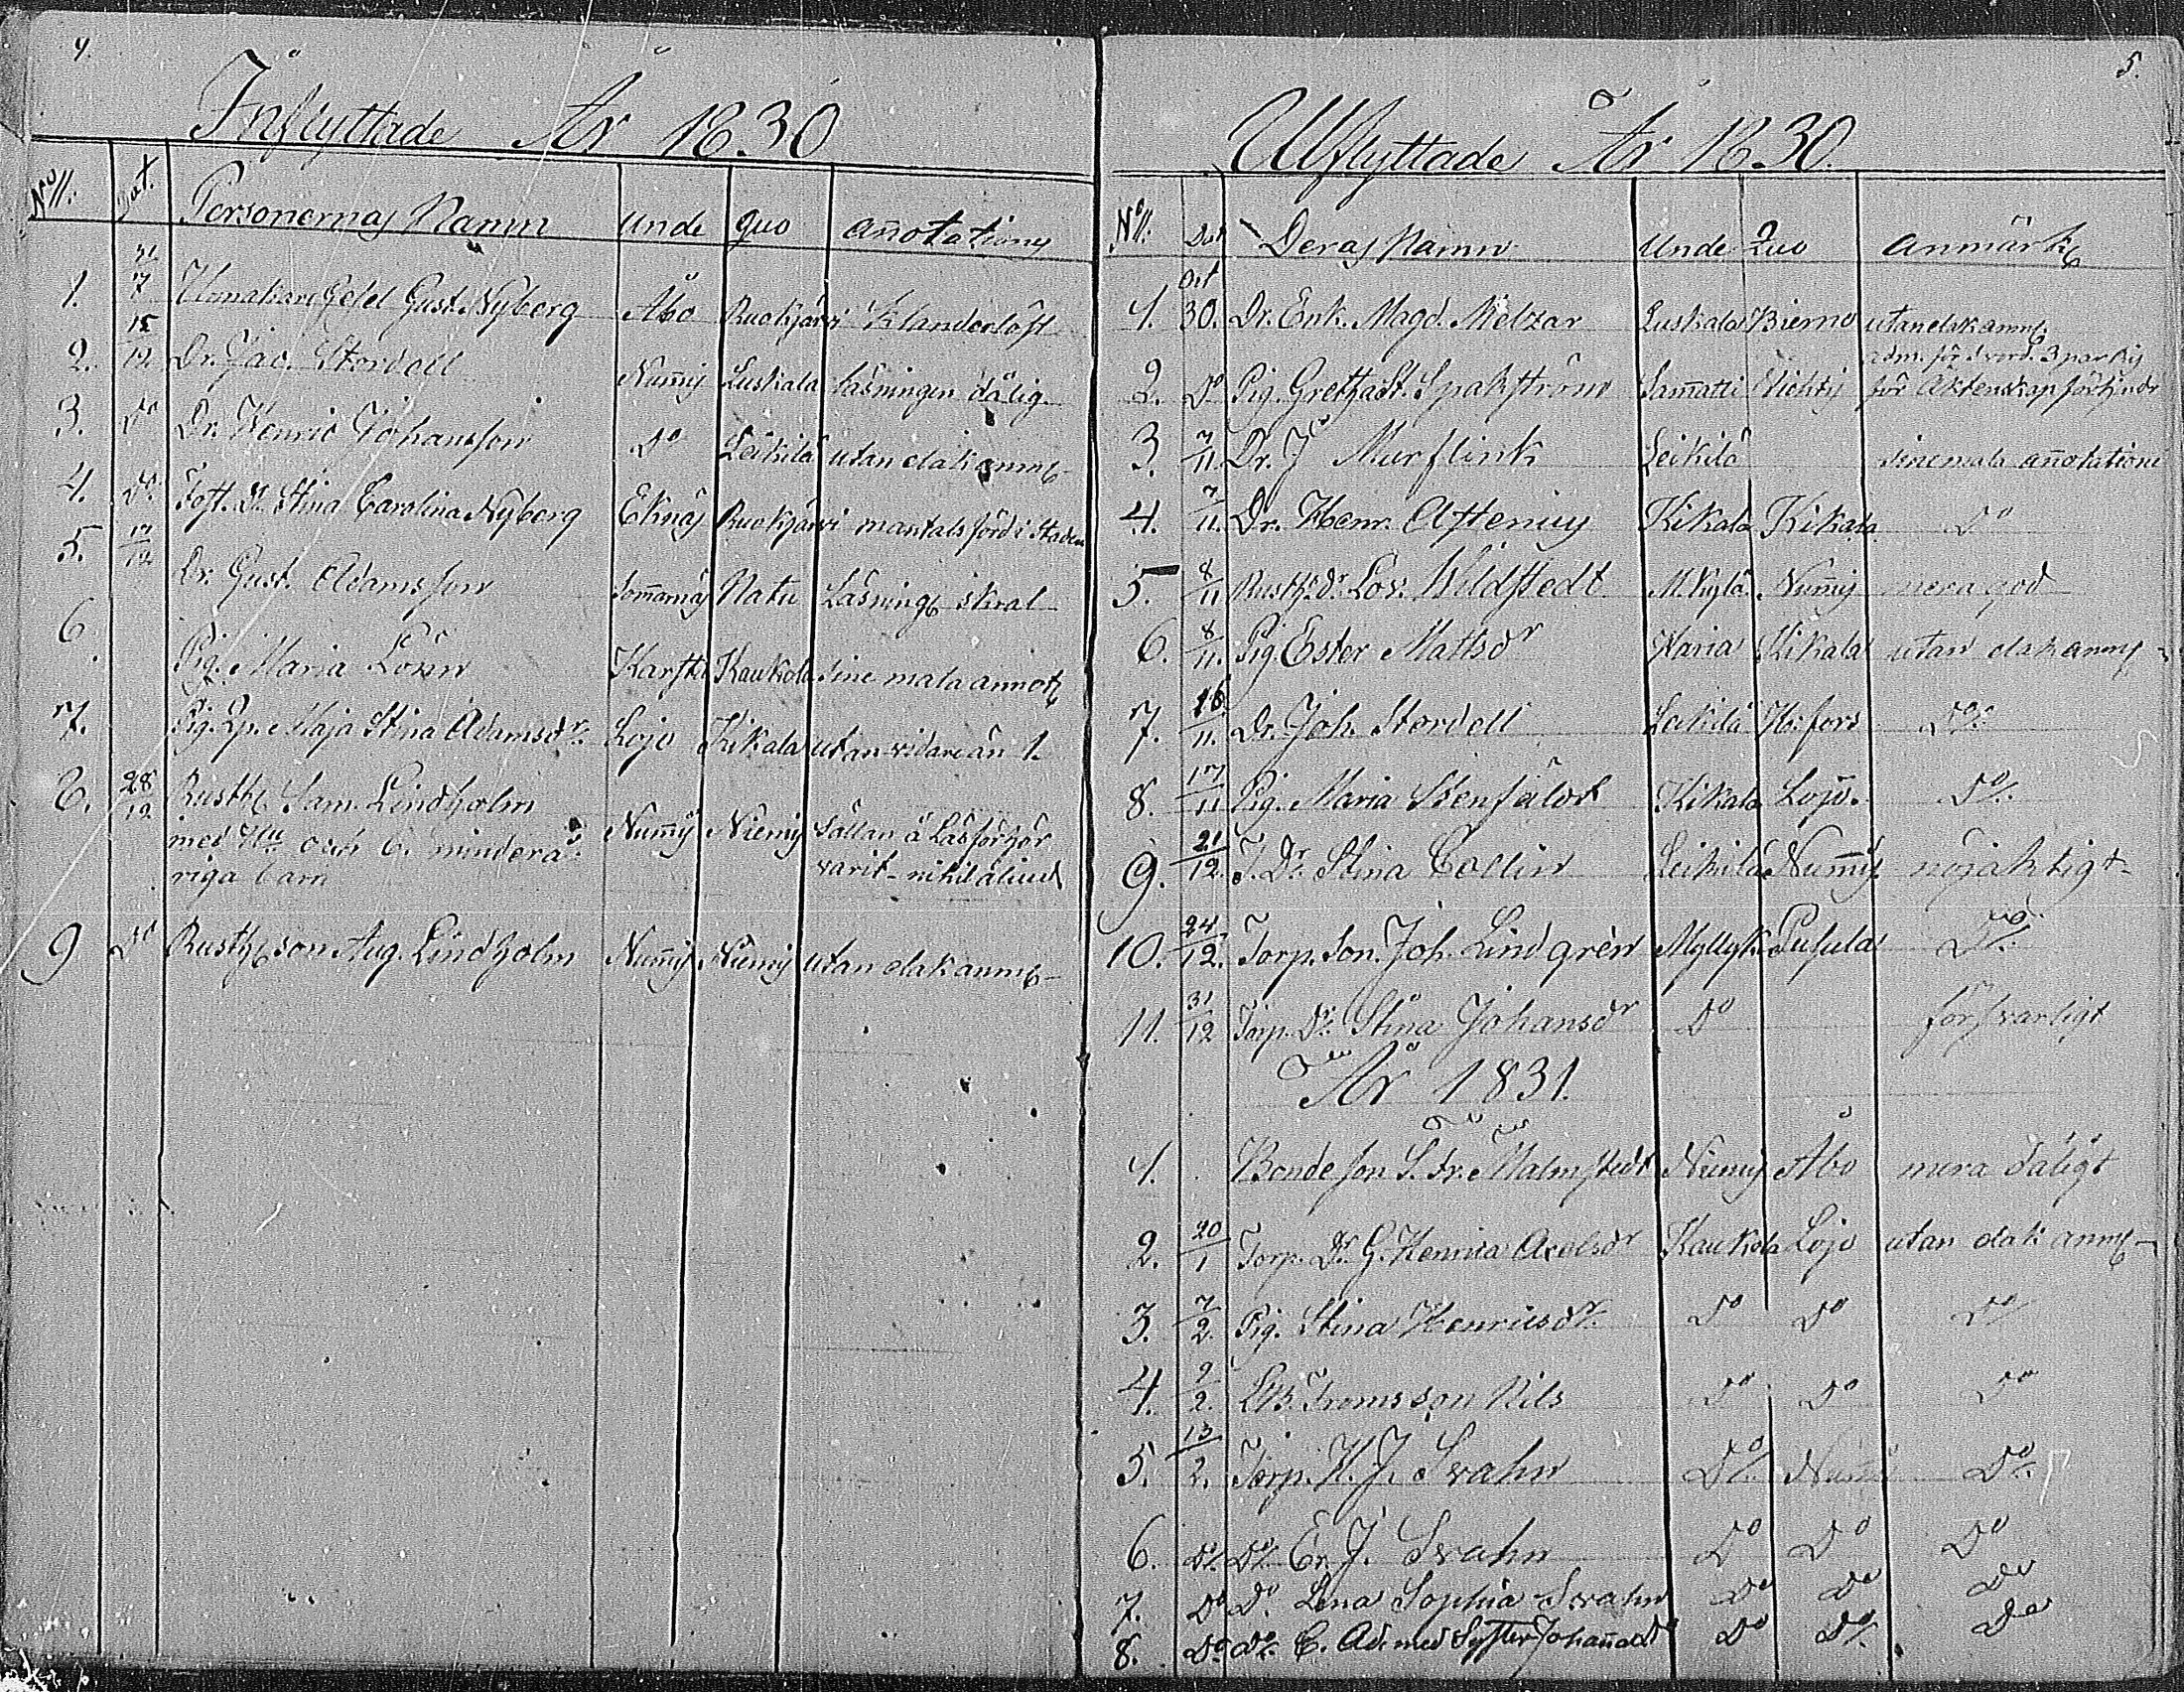 4.
Inflyttade År 1830
No Dat. Personernas Namn Unde quo Annotations
1. 31/7 Gesel Gust. Nyberg Åbo Ruokjärvi Klanderlöst
2. 15/12 Dr. Jac. Stordell Num̄is Luskala läsningen dålig
3. Do Dr. Henric Johansson Do Leikilä utan elak anm
4. Do Stina Carolina Nyberg Eknäs Ruokjärvi mantalsförd i Staden
5. 17/12 Dr. Gust. Adamsson Som̄arnäs Natu Läsning skral
6. Pig. Maria Karsku Kaukola sine mala annot
7. Pig. Maja Stina Adamsdr Lojo Kikala utan vidare än 1.
8. 28/12 Rusth Sam. Lindholm
med Hu och 6. mindera Num̄is Niemis sällan å Läsförhör
riga barn varit nihil aliud
9 Do Rusth son Aug. Lindholm Num̄is Niemis utan elak anm
5.
Utflyttade År 1830.
No Dat Deras Namn Unde Quo Anmärk
Oct
1. 30. Dr. Enk. Magd. Melzar Luskala Bierno utan elak anm
adm. för
2. Do Pig. Greta St. Spakström Sam̄atti för Äktenskap
3. 7/11. Dr. J Murflink Leikilä sine mala an̄otatione
4. 7/11. Dr. Henr. Kikala Kikala Do
5 8/11 Rusth. dr Lov. Wildstedt M.Kylä Num̄is mera god
6. 8/11. Pig. Ester Mattsdr Kikala utan elak anm
7. 16/11. Dr. Joh. Stordell Leikilä H:fors Do
8. 17/11 Pig. Maria Stenfäldt Kikala Lojo. Do
9. 21/12. Dr. Stina Collin Leikilä Num̄is nöjaktigt
10. 24/12. Torp. Son. Joh. Lindgrén Myllyk. Pusula Do
11. 31/12 Torp. Dr. Stina Johansdr Do försvarligt
År 1831.
1. Bondeson Malmstedt Niemis Åbo mera dåligt
2. 20/1 Torp. Dr. G. Henrica Axelsdr Kaukola Lojo utan elak anm
3. 7/2. Pig. Stina Henricsdr Do Do Do
4. 9/2. Nils Do Do Do
5. 13/2. Torp. H. J. Svahn Do Num̄i Do
6. Do Do Er. J. Svahn Do Do Do
7. Do Do Lena Sophia Svahn Do Do Do
8. Do Do C. Ad. med Syster Johan̄a Do Do Do